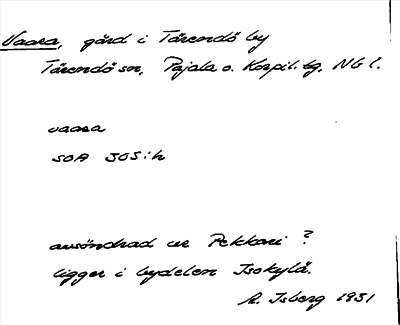 Vaara, gård i Tärendö by
Tärendö sn, Pajala o. Korpil. tg. Nb l.
vaara
SOA 305:h
avsöndrad ur Pekkari ?
ligger i bydelen Isokylä.
R. Isberg 1931